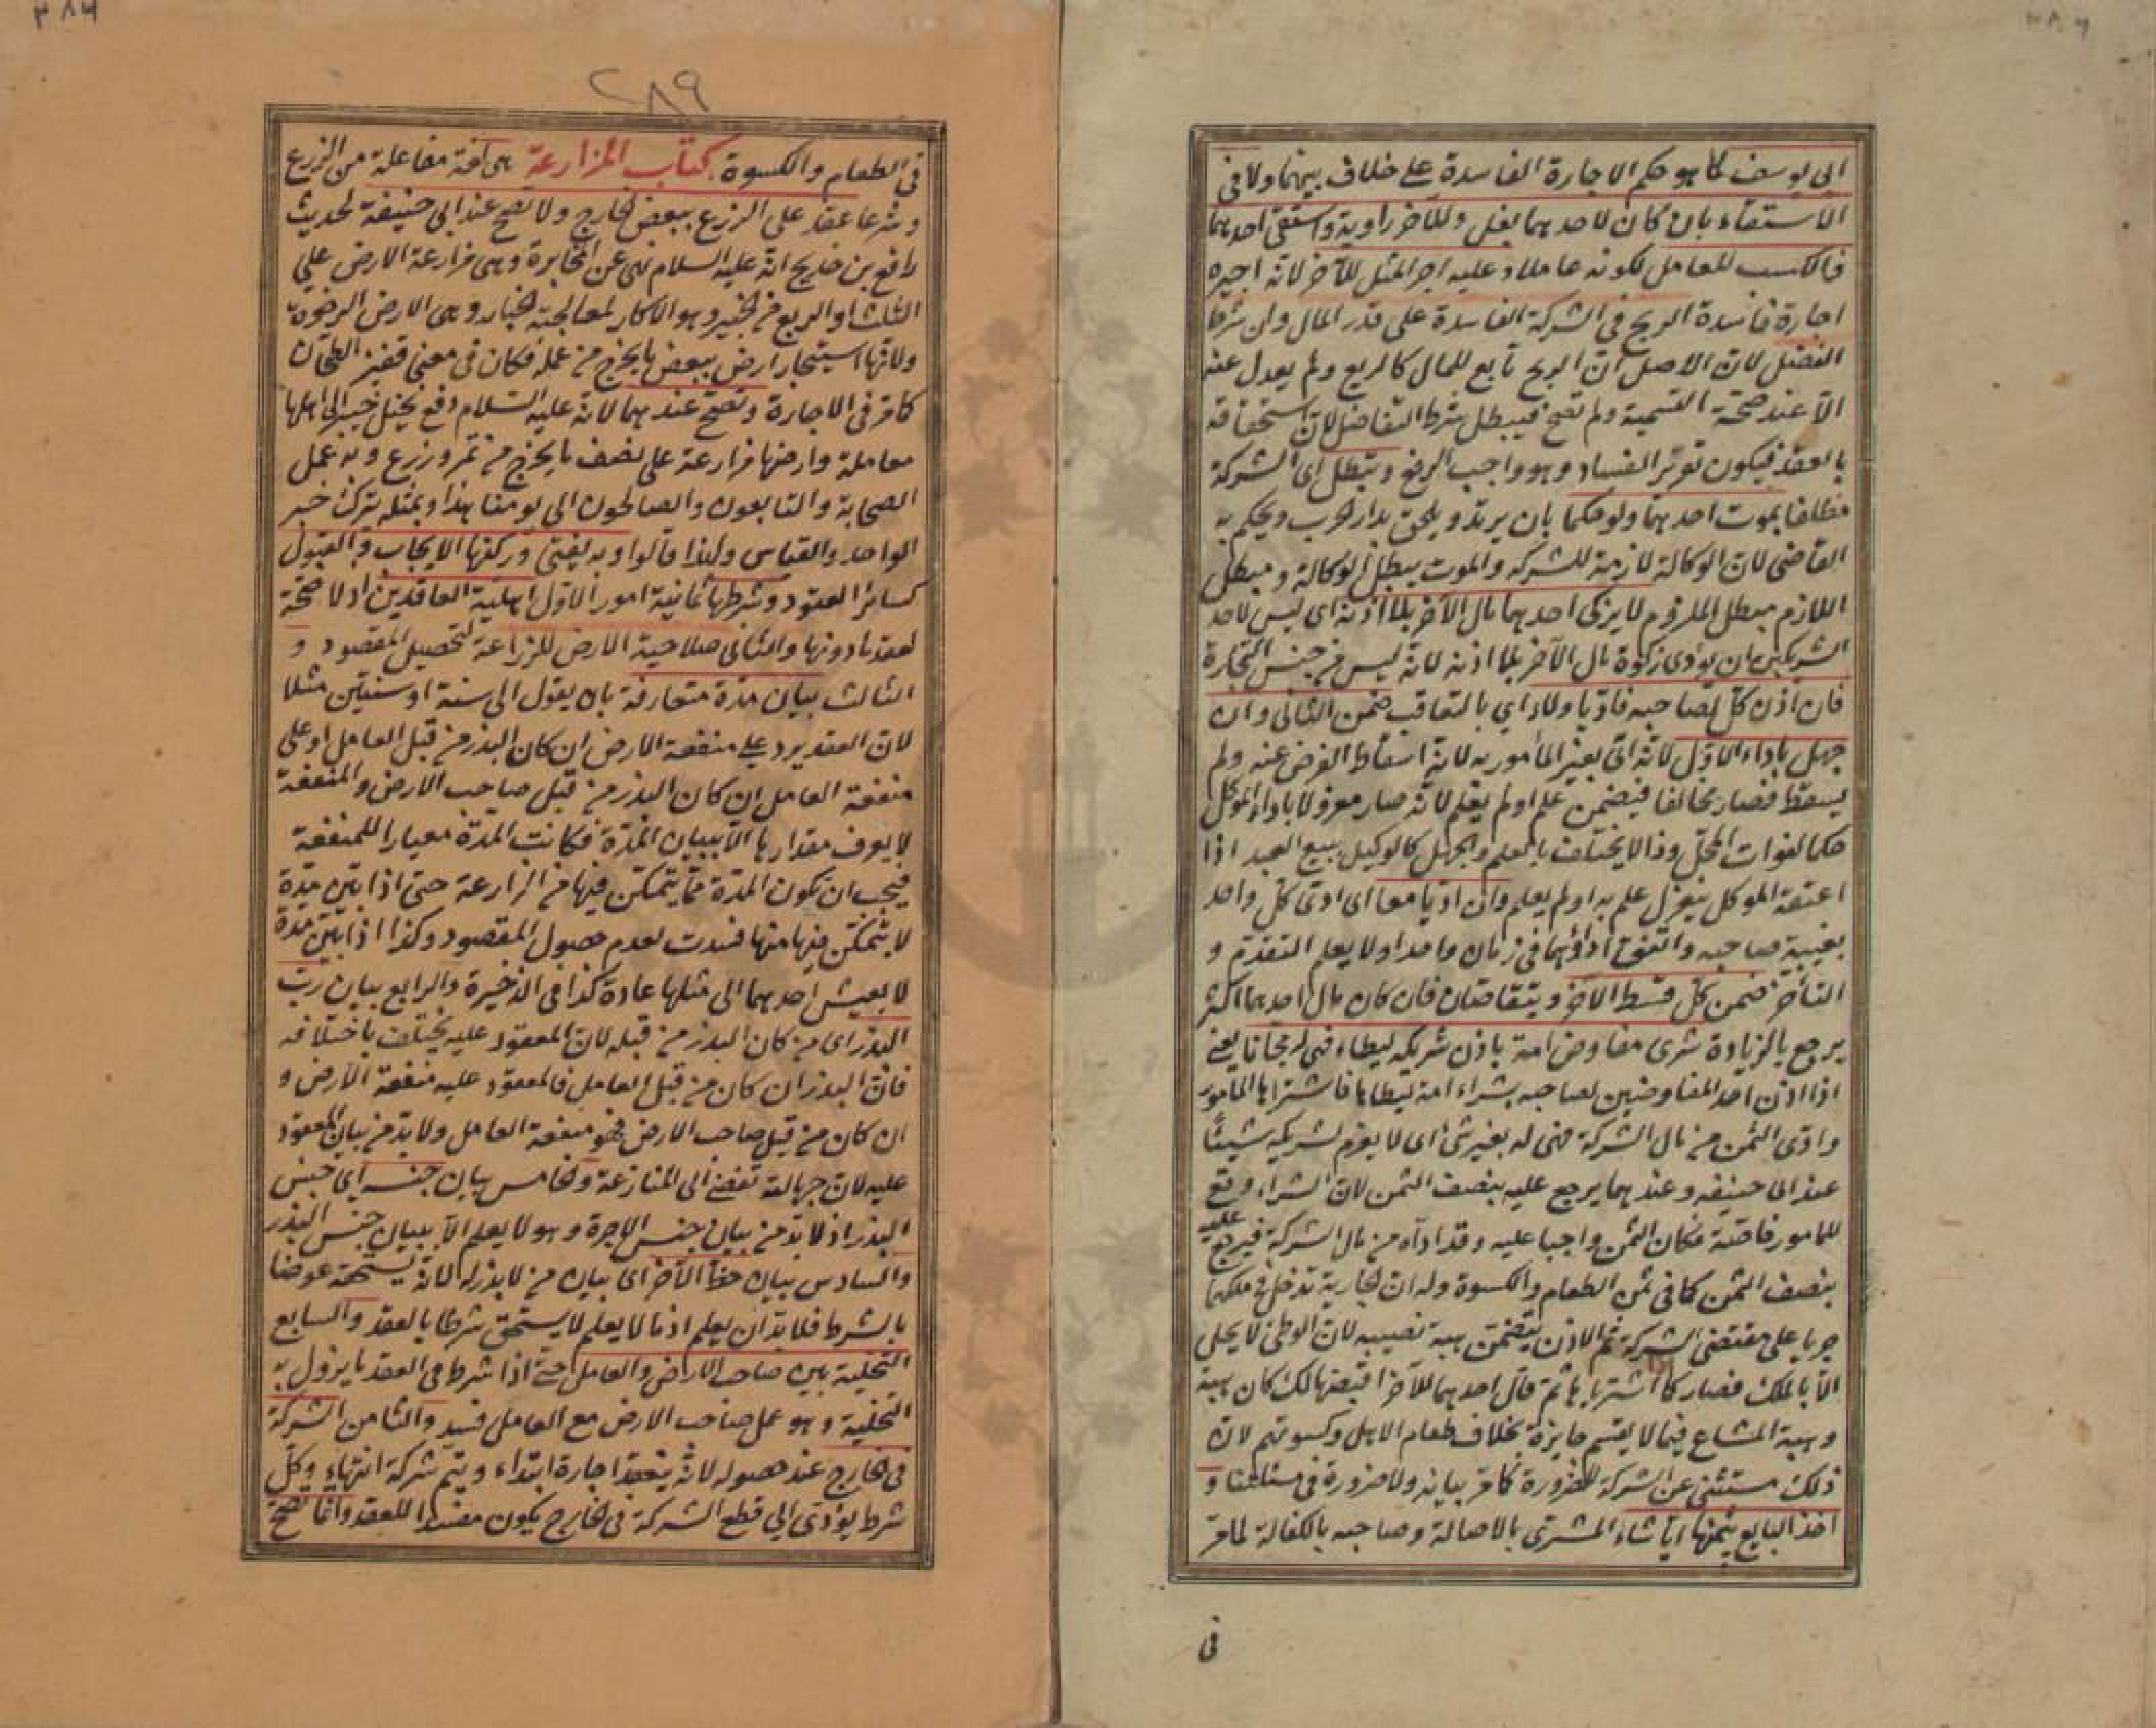 ابى يوسف كما هو حكم الاجارة الفاسدة على خلاف بينهما ولا فى
الاستقاء بان كان لاحدهما بغل وللآخر راوية واستقى احدهما
فالكسب للعامل لكونه عاملا وعليه اجر المثل للآخر لانه اجيره
اجارة فاسدة الربح فى الشركة الفاسدة على قدر المال وان شرط
الفضل لان الاصل ان الربح تابع للمال كالريع ولم يعدل عنه
الا عند صحة التسمية ولم تصح فيبطل شرط التفاضل لان استحقاقه
بالعقد فيكون تقرير الفساد وهو واجب الرفع وتبطل اى الشركة
مطلقا بموت احدهما ولو حكما بان يرتد ويلحق بدار الحرب ويحكم به
القاضى لان الوكالة لازمة للشركه والموت يبطل الوكالة ومبطل
اللازم مبطل الملزوم لا يزكى احدهما مال الآخر بلا اذنه اى ليس لاحد
الشريكين ان يؤدى زكوة مال الآخر بلا اذنه لانه ليس من جنس التجارة
فان اذن كل لصاحبه فاديا ولاء اى بالتعاقب ضمن الثانى وان
جهل باداء الاول لانه اتى بغير المأمور به لانه اسقاط الفرض عنه ولم
يسقط فصار مخالفا فيضمن علم او لم يعلم لانه صار معزولا باداء الموكل
حكما لفوات المحل وذا لا يختلف بالعلم والجهل كالوكيل ببيع العبد اذا
اعتقه الموكل ينعزل علم به او لم يعلم وان اديا معا اى ادى كل واحد
بغيبة صاحبه واتفق اداؤهما فى زمان واحد او لا يعلم التقدم و
التأخر ضمن كل قسط الآخر ويتقاصان فان كان مال احدهما اكثر
يرجع بالزيادة شرى مفاوض امة باذن شريكه ليطاء فهى له مجانا يعنى
اذا اذن احد المفاوضين لصاحبه بشراء امة ليطاها فاشتراها المأمور
وادى الثمن من مال الشركة فهى له بغير شئ اى لا يغرم لشريكه شيئًا
عند ابى حنيفه وعندهما يرجع عليه بنصف الثمن لان الشراء وقع
للمامور خاصة فكان الثمن واجبا عليه وقد اداه من مال الشركة فيرجع عليه
بنصف الثمن كما فى ثمن الطعام والكسوة وله ان الجارية تدخل فى ملكهما
جريا على مقتضى الشركة ثم الاذن يتضمن هبة نصيبه لان الوطئ لا يحل
الا بالملك فصار كما اشترياها ثم قال احدهما للآخر اقبضها لك كان هبة
وهبة المشاع فيما لا يقسم جايزة بخلاف طعام الاهل وكسوتهم لان
ذلك مستثنى عن الشركة للضرورة كما مر بيانه ولا ضرورة فى مسئلتنا و
اخذ البايع بثمنها ايا شاء المشترى بالاصالة وصاحبه بالكفالة لما مر
فى
٢٨٩
فى الطعام والكسوة كتاب المزارعة هى لغة مفاعلة من الزرع
وشرعا عقد على الزرع ببعض الخارج ولا تصح عند ابى حنيفة لحديث
رافع بن خديج انه عليه السلام نهى عن المخابرة وهى مزارعة الارض على
الثلث او الربع من الخبير وهو الاكار لمعالجته الخبار وهى الارض الرخوة
ولانها استيجار ارض ببعض ما يخرج من عمله فكان فى معنى قفيز الطحان
كما مر فى الاجارة وتصح عندهما لانه عليه السلام دفع نخيل خيبر الى اهلها
معاملة وارضها مزارعة على نصف ما يخرج من ثمر وزرع وبه عمل
الصحابة والتابعون والصالحون الى يومنا هذا وبمثله يترك خبر
الواحد والقياس ولهذا قالوا وبه يفتى وركنها الايجاب والقبول
كسائر العقود وشرطها ثمانية امور الاول اهلية العاقدين اذ لا صحة
لعقد ما دونها والثانى صلاحية الارض للزراعة لتحصيل المقصود و
الثالث بيان مدة متعارفة بان يقول الى سنة او سنتين مثلا
لان العقد يرد على منفعة الارض ان كان البذر من قبل العامل او على
منفعة العامل ان كان البذر من قبل صاحب الارض والمنفعة
لا يعرف مقدارها الا ببيان المدة فكانت المدة معيارا للمنفعة
فيجب ان تكون المدة مما يتمكن فيها من الزارعة حتى اذا بين مدة
لا يتمكن فيها منها فسدت لعدم حصول المقصود وكذا اذا بين مدة
لا يعيش احدهما الى مثلها عادة كذا فى الذخيرة والرابع بيان رب
البذر اى من كان البذر من قبله لان المعقود عليه يختلف باختلافه
فان البذر ان كان من قبل العامل فالمعقود عليه منفعة الارض و
ان كان من قبل صاحب الارض فهو منفعة العامل ولا بد من بيان المعقود
عليه لان جهالته تفضى الى المنازعة والخامس بيان جنسه اى جنس
البذر اذ لا بد من بيان جنس الاجرة وهو لا يعلم الا ببيان جنس البذر
والسادس بيان حظ الآخر اى بيان من لا بذر له لانه يستحقه عوضا
بالشرط فلا بد ان يعلم اذ ما لا يعلم لا يستحق شرطا بالعقد والسابع
التخلية بين صاحب الارض والعامل حتى اذا شرط فى العقد ما يزول به
التخلية وهو عمل صاحب الارض مع العامل فسد والثامن الشركة
فى الخارج عند حصوله لانه ينعقد اجارة ابتداء ويتم شركة انتهاء وكل
شرط يؤدى الى قطع الشركة فى الخارج يكون مفسدا للعقد وانما تصح